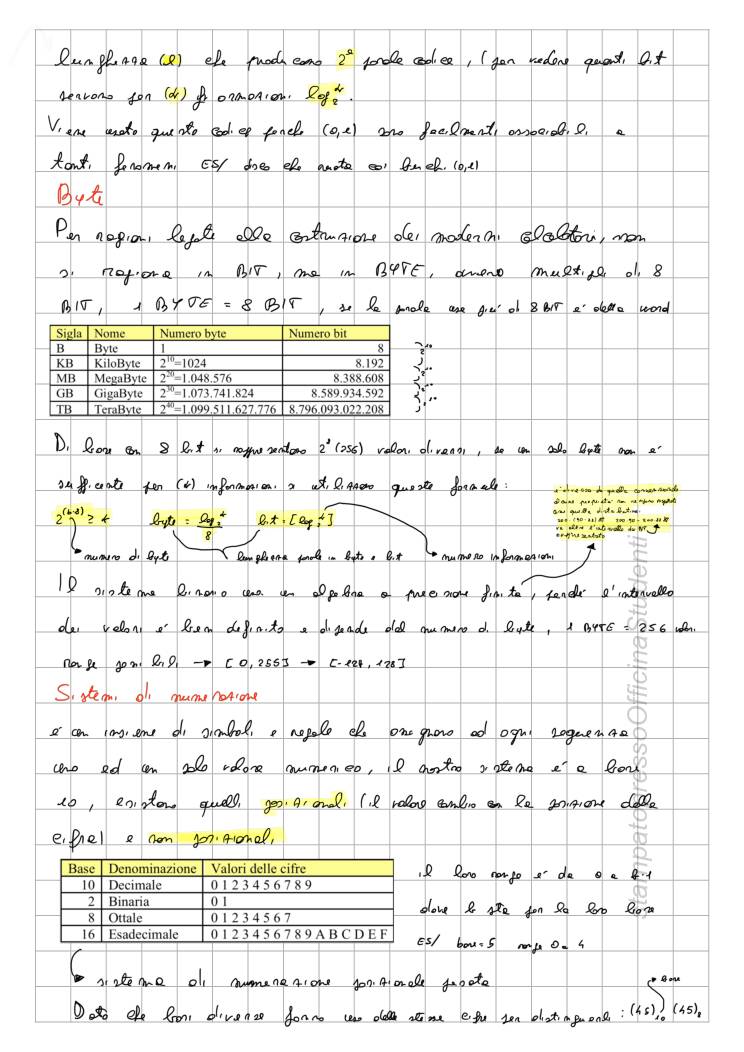 lunghezza (l) che producono 2^l parole codice, (per vedere quanti bit
servono per (d) informazioni log_2^d.
Viene usato questo codice perché (0,1) sono facilmente associabili a
tanti fenomeni ES/ disco che ruota coi buchi (0,1)
Byte
Per ragioni legate alla costruzione dei moderni calcolatori, non
si ragiona in BIT, ma in BYTE, ovvero multipli di 8
BIT, 1 BYTE = 8 BIT, se la parola usa più di 8 BIT e' detta word
Sigla Nome Numero byte Numero bit
B Byte 1 8
KB KiloByte 2^10=1024 8.192
MB MegaByte 2^20=1.048.576 8.388.608
GB GigaByte 2^30=1.073.741.824 8.589.934.592
TB TeraByte 2^40=1.099.511.627.776 8.796.093.022.208
Di base con 8 bit si rappresentano 2^8 (256) valori diversi, se un solo byte non e'
sufficiente per (d) informazioni si utilizzano queste formule:
2^(b·8) ≥ d byte = log_2^d / 8 bit = [log_2^d]
numero di byte lunghezza parole in byte e bit numero informazioni
Il sistema binario usa un algebra a precisione finita, perché l'intervallo
dei valori e' ben definito e dipende dal numero di byte, 1 BYTE = 256 valori
range possibili → [0,255] → [-127, 128]
Sistemi di numerazione
e' un insieme di simboli e regole che assegnano ad ogni sequenza
uno ed un solo valore numerico, il nostro sistema e' a base
10, esistono quelli posizionali (il valore cambia con la posizione delle
cifre) e non posizionali
Base Denominazione Valori delle cifre
10 Decimale 0 1 2 3 4 5 6 7 8 9
2 Binaria 0 1
8 Ottale 0 1 2 3 4 5 6 7
16 Esadecimale 0 1 2 3 4 5 6 7 8 9 A B C D E F
il loro range e' da 0 a b-1
dove b sta per la loro base
ES/ base=5 range 0-4
sistema di numerazione posizionale pesata
base
Dato che basi diverse fanno uso delle stesse cifre per distinguerli: (45)_10, (45)_8
StampatopressoOfficinaStudenti